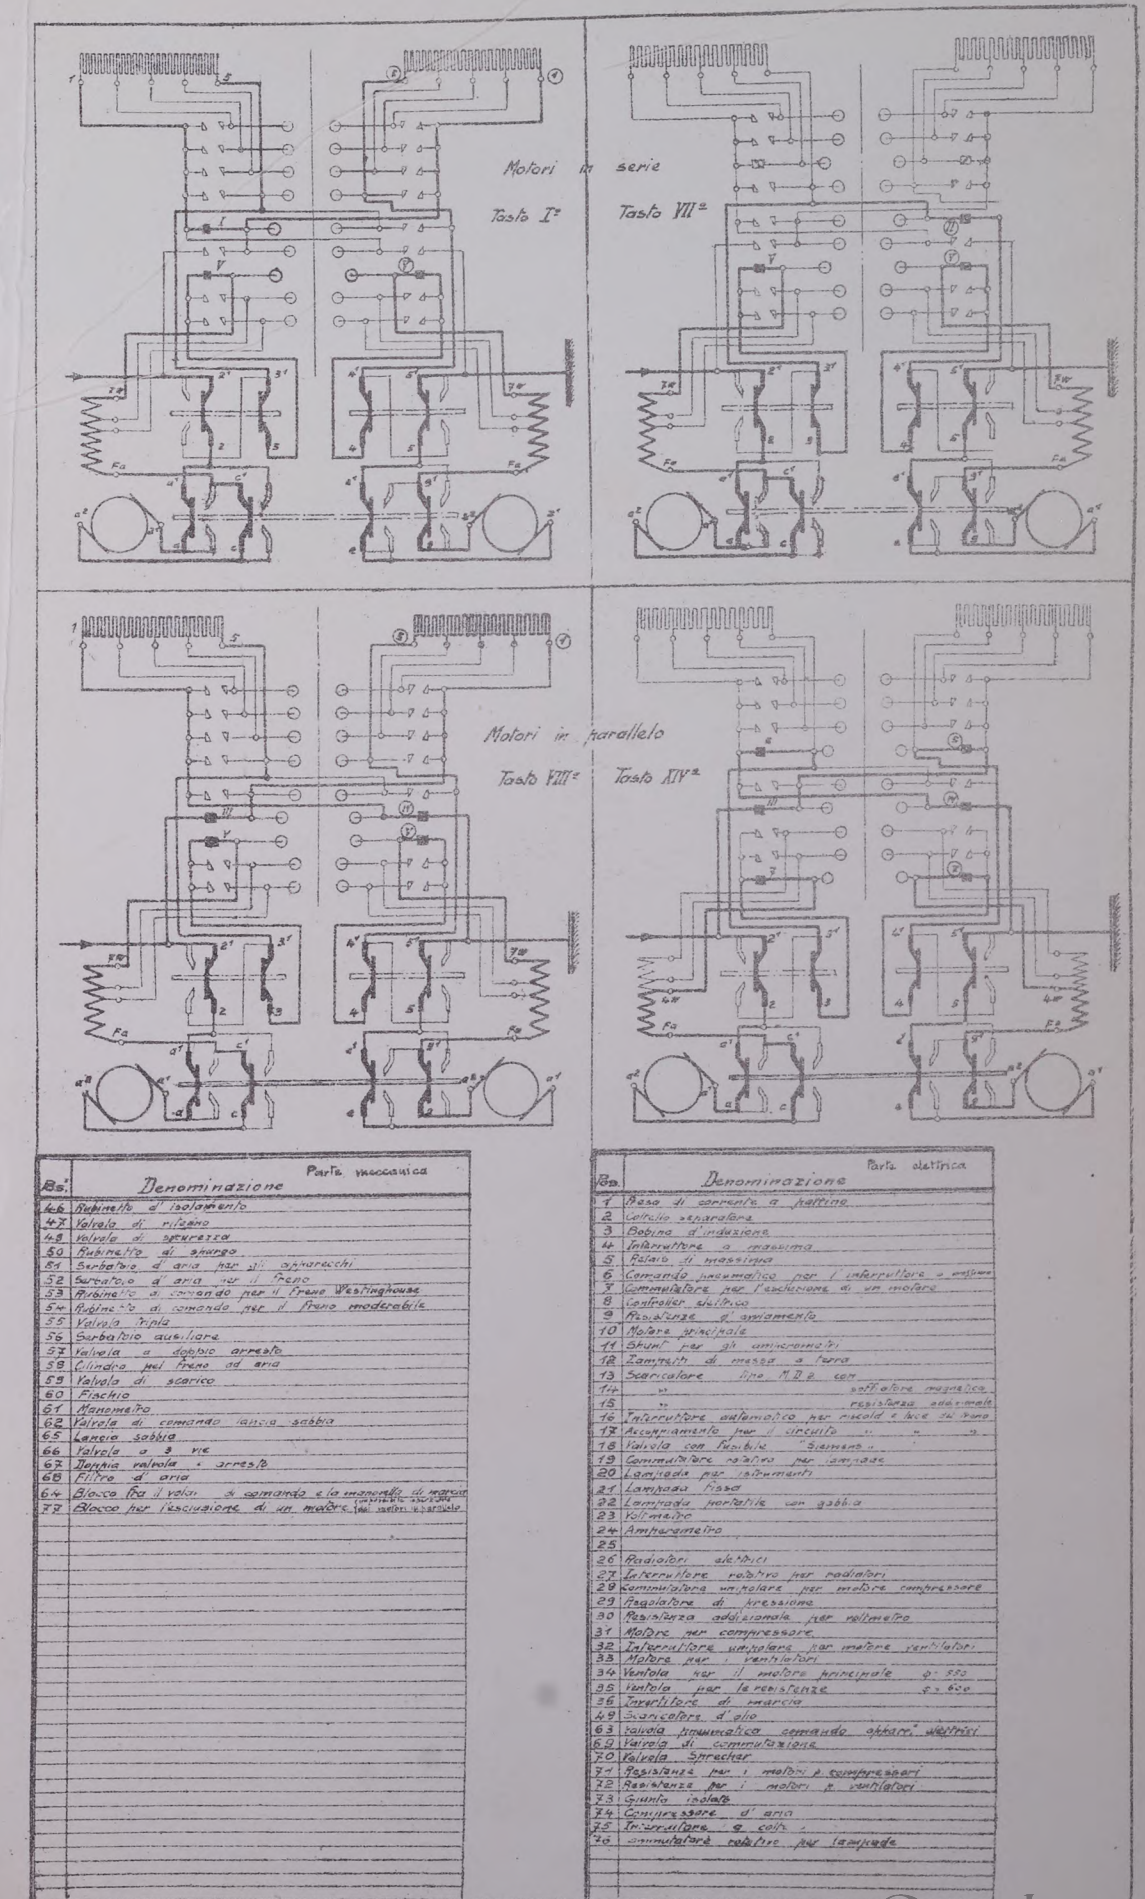 Motori in serie
Tasto Iº
Tasto VIIº
Motori in parallelo
Tasto VIIIº
Tasto XIVº
Parte meccanica
Pos. Denominazione
46 Rubinetto d'isolamento
47 Valvola di ritegno
48 Valvola di sicurezza
50 Rubinetto di spurgo
51 Serbatoio d'aria per gli apparecchi
52 Serbatoio d'aria per il freno
53 Rubinetto di comando per il Freno Westinghouse
54 Rubinetto di comando per il freno moderabile
55 Valvola tripla
56 Serbatoio ausiliare
57 Valvola a doppio arresto
58 Cilindro pel freno ad aria
59 Valvola di scarico
60 Fischio
61 Manometro
62 Valvola di comando lancia sabbia
65 Lancia sabbia
66 Valvola a 3 vie
67 Doppia valvola arresto
68 Filtro d'aria
64 Blocco fra il volan di comando e la manovella di marcia
77 Blocco per l'esclusione di un motore
Parte elettrica
Pos. Denominazione
1 Presa di corrente a pattino
2 Coltello separatore
3 Bobina d'induzione
4 Interruttore a massima
5 Relais di massima
6 Comando pneumatico per l'interruttore a massima
7 Commutatore per l'esclusione di un motore
8 Controller elettrico
9 Resistenze d'avviamento
10 Motore principale
11 Shunt per gli amperometri
12 Zampetti di messa a terra
13 Scaricatore tipo M.D.2 con
14 " soffiatore magnetico
15 " resistenza addizionale
16 Interruttore automatico per riscald e luce del treno
17 Accoppiamento per il circuito " " "
18 Valvola con fusibile "Siemens"
19 Commutatore rotativo per lampade
20 Lampada per istrumenti
21 Lampada fissa
22 Lampada portatile con gabbia
23 Voltmetro
24 Amperometro
25
26 Radiatori elettrici
27 Interruttore rotativo per radiatori
28 Commutatore unipolare per motore compressore
29 Regolatore di pressione
30 Resistenza addizionale per voltmetro
31 Motore per compressore
32 Interruttore unipolare per motore ventilatori
33 Motore per i ventilatori
34 Ventola per il motore principale φ= 550
35 Ventola per le resistenze φ= 600
36 Invertitore di marcia
49 Scaricatore d'olio
63 Valvola pneumatica comando appar. elettrici
69 Valvola di commutazione
70 Valvola Sprecher
71 Resistenze per i motori p. compressori
72 Resistenze per i motori p. ventilatori
73 Giunto isolato
74 Compressore d'aria
75 Interruttore a colte
76 Commutatore rotativo per lampade